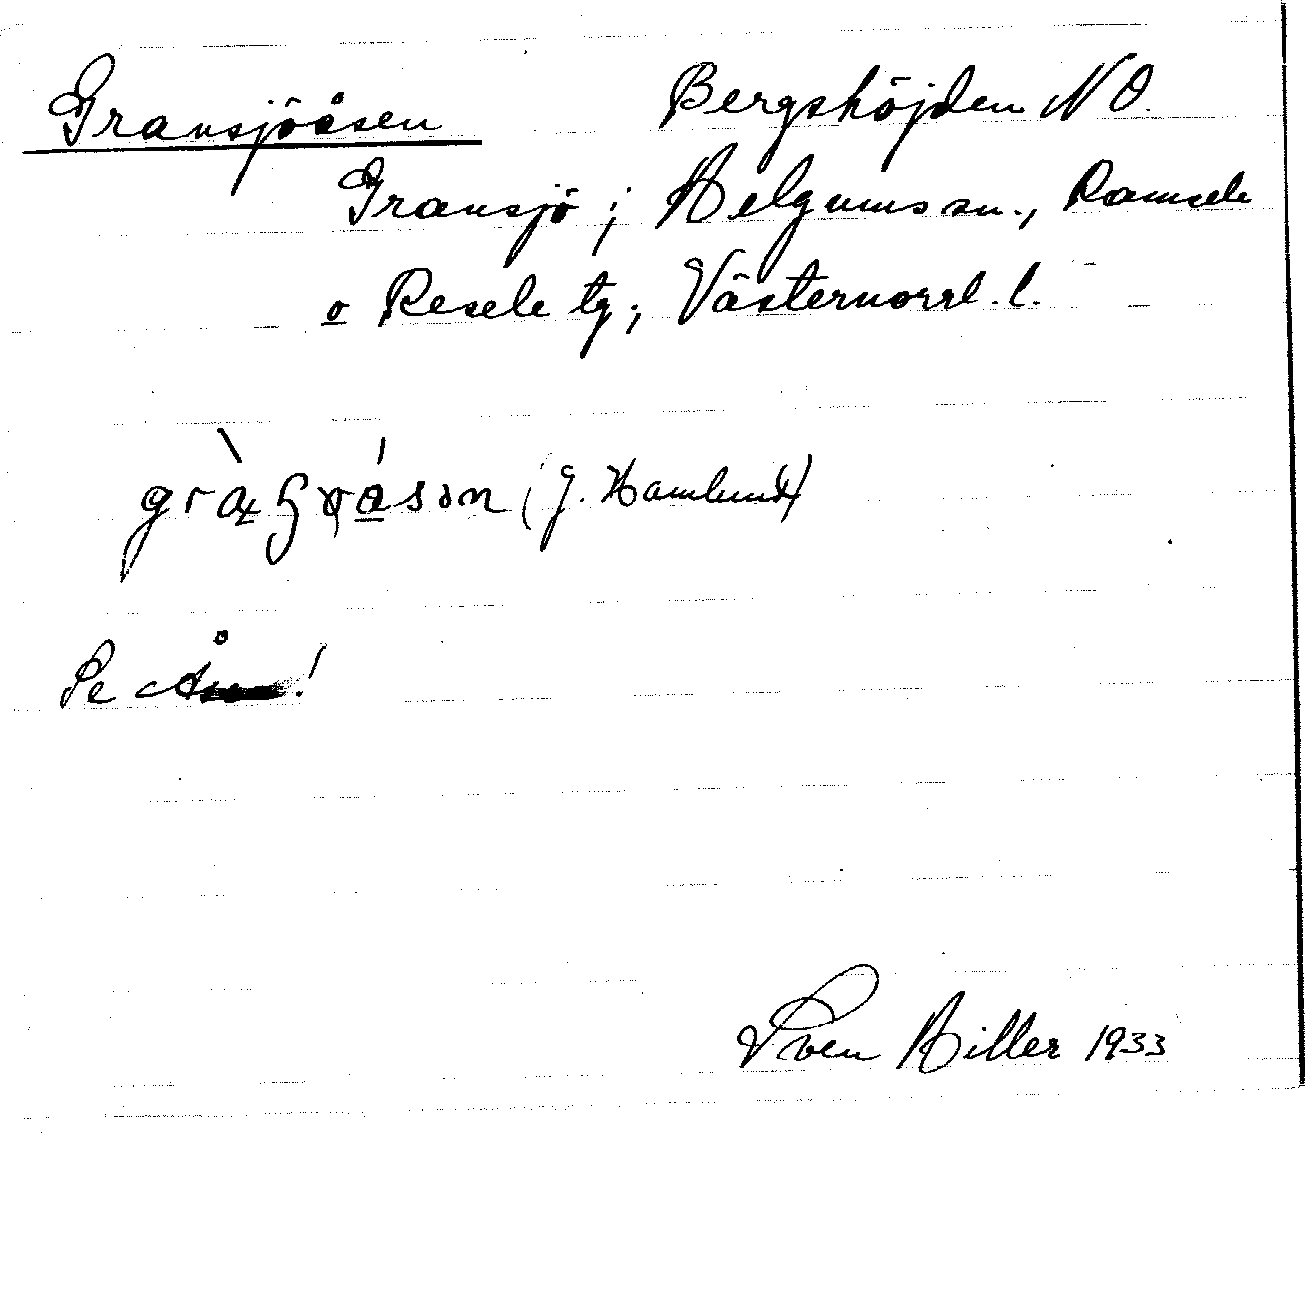 Gransjöåsen Bergshöjden NO
Gransjö; Helgums sn., Ramsele
o Resele tg; Västernorrl. l.
(J. Hamlund)
Se !
Sven Hiller 1933